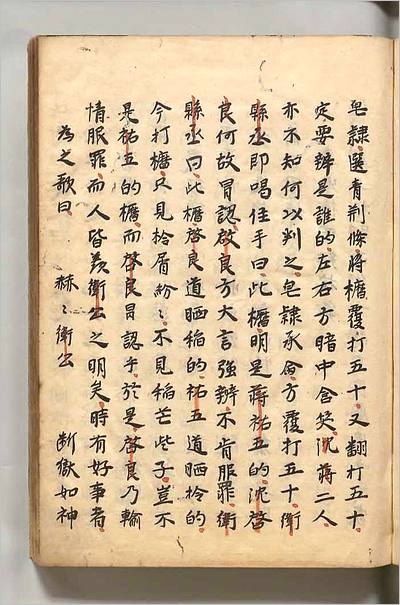 皂隷選青荆條將櫃覆打五十又翻打五十
定要辨是誰的左右方暗中含笑沈蔣二人
亦不知何以判之皂隷承命方覆打五十衛
縣丞即喝住手曰此櫃明是蔣祐五的沈啓
良何故冒認啟良方大言強辨不肯服罪衛
縣丞曰此櫃啓良道晒稻的祐五道晒柃的
今打櫃只見柃屑紛〻不見稻芒些子豈不
是祐五的櫃而啓良冒認乎於是啓良乃輸
情服罪而人皆羨衛公之明矣時有好事者
為之歌曰 赫〻衛公 斷獄如神